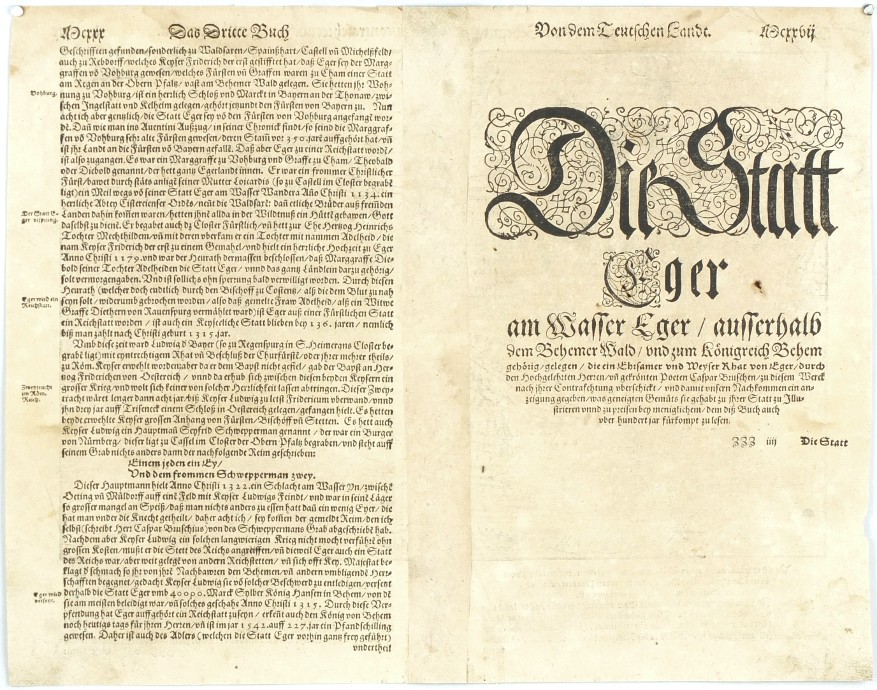 Mcxxx Das Dritte Buch
Geschrifften gefunden/sonderlich zu Waldsaxen/Spainßhart/Castell vñ Michelßfeld/
auch zu Rebdorff/welches Keyser Friderich der erst gestifftet hat/daß Eger sey der Marg-
graffen võ Vohburg gewesen/welches Fürsten vñ Graffen waren zu Cham einer Statt
am Regen an der Obern Pfaltz/vast am Behemer Wald gelegen. Sie hetten jhr Woh-
Vohburg.
nung zu Vohburg/ist ein herlich Schloß vnd Marckt in Bayern an der Thonaw/zwi-
schen Jngelstatt vnd Kelheim gelegen/gehört jetzundt den Fürsten von Bayern zu. Nun
acht ich aber gentzlich/die Statt Eger sey võ den Fürsten von Vohburg angefangt wor-
dẽ. Dañ wie man ins Auentini Außzug/in seiner Chronick findt/so seind die Marggraf-
fen võ Vohburg sehr alte Fürsten gewesen/deren Stañ vor 350. jarẽ auffgehört hat/vñ
ist jhr Landt an die Fürsten võ Bayern gefallẽ. Daß aber Eger zu einer Reichstatt wordẽ/
ist also zugangen. Es war ein Marggraffe zu Vohburg vnd Graffe zu Cham/Theobald
oder Diebold genannt/der hett gantz Egerland innen. Er war ein frommer Christlicher
Fürst/bawet durch stäts anligẽ seiner Mutter Loicardis (so zu Castell im Closter begrabẽ
ligt) ein Meil wegs võ seiner Statt Eger am Wasser Wandera Año Christi 1134. ein
herrliche Abtey Cistercienser Ordẽs/neũt die Waldsax: dañ etliche Brüder auß frembdẽ
Der Statt E-
ger vrsprung.
Landen dahin kom̃en waren/hetten jhnẽ allda in der Wildtnuß ein Hüttẽ gebawen/Gott
daselbst zu dienẽ. Er begabt auch dz Closter Fürstlich/vñ hett zur Ehe Hertzog Heinrichs
Tochter Mechthildem/vñ mit deren vberkam er ein Tochter mit nammen Adelheid/die
nam Keyser Friderich der erst zu einem Gemahel/vnd hielt ein herrlich Hochzeit zu Eger
Anno Christi 1179. vnd war der Heurath dermassen beschlossen/daß Marggraffe Die-
bold seiner Tochter Adelheiden die Statt Eger/vnnd das gantz Ländlein darzu gehörig/
solt vermorgengaben. Vnd ist sollichs ohn sperrung bald verwilligt worden. Durch diesen
Heurath (welcher doch endtlich durch den Bischoff zu Costentz/alß die dem Blut zu nah
Eger wird ein
Reichstatt.
seyn solt/widerumb gebrochen worden/also daß gemelte Fraw Adelheid/alß ein Witwe
Graffe Diethern von Rauenspurg vermählt ward) ist Eger auß einer Fürstlichen Statt
ein Reichstatt worden/ist auch ein Keyserliche Statt blieben bey 136. jaren/nemlich
biß man zahlt nach Christi geburt 1315. jar.
Vmb diese zeit ward Ludwig võ Bayer (so zu Regenspurg in S. Heimerans Closter be-
grabẽ ligt) mit eyntrechtigem Rhat vñ Beschluß der Churfürstẽ/oder jhrer mehrer theils/
zu Röm. Keyser erwehlt worden/aber da er dem Bapst nicht gefiel/gab der Bapst an Her-
tzog Fridericen von Oestereich/vnnd da erhub sich zwischen diesen beyden Keysern ein
Zweytracht
im Röm.
Reich.
grosser Krieg/vnd wolt sich keiner von solcher Herrlichkeit lassen abtringen. Dieser Zwey-
tracht wäret lenger dann acht jar/biß Keyser Ludwig zu letst Fridericum vberwand/vnnd
jhn drey jar auff Trisenck einem Schloß in Oestereich gelegen/gefangen hielt. Es hetten
beyde erwehlte Keyser grossen Anhang von Fürsten/Bischöff vñ Stetten. Es hett auch
Keyser Ludwig ein Hauptmañ Seyfrid Schwepperman genannt/der war ein Burger
von Nürnberg/dieser ligt zu Cassel im Closter der Obern Pfaltz begraben/vnd steht auff
seinem Grab nichts anders dann der nachfolgende Reim geschrieben:
Einem jeden ein Ey/
Vnd dem frommen Schwepperman zwey.
Dieser Hauptmann hielt Anno Christi 1322. ein Schlacht am Wasser Yn/zwischẽ
Oeting vñ Müldorff auff einẽ Feld mit Keyser Ludwigs Feindt/vnd war in seinẽ Läger
so grosser mangel an Speiß/daß man nichts anders zu essen hatt dañ ein wenig Eyer/die
hat man vnder die Knecht getheilt/daher acht ich/sey kom̃en der gemeldt Reim/den ich
selbst (schreibt Herr Caspar Bruschius) von des Schweppermans Grab abgeschriebẽ hab.
Nachdem aber Keyser Ludwig ein solchen langwirigen Krieg nicht mocht verführẽ ohn
grossen Kosten/mußt er die Stett des Reichs angreiffen/vñ dieweil Eger auch ein Statt
des Reichs war/aber weit gelegẽ von andern Reichstetten/vñ sich offt Key. Majestat be-
klagt d schmach so jhr von jhrẽ Nachbawren den Behmen/vñ andern vmbligendẽ Herr-
schafften begegnet/gedacht Keyser Ludwig sie võ solcher Beschwerd zu entledigen/versetzt
Eger wird
versetzt.
derhalb die Statt Eger vmb 40000. Marck Sylber König Hansen in Behem/von dẽ
sie am meisten beleidigt war/vñ solches geschahe Anno Christi 1315. Durch diese Ver-
pfendung hat Eger auffgehört ein Reichstatt zu seyn/erkeñt auch den König von Behem
noch heutigs tags für jhren Herren/vñ ist im jar 1542. auff 227. jar ein Pfandschilling
gewesen. Daher ist auch des Adlers (welchen die Statt Eger vorhin gantz frey geführt)
vndertheil
Von dem Teutschen Landt. Mcxxvij
Die Statt
Eger
am Wasser Eger / ausserhalb
dem Behemer Wald/vnd zum Königreich Behem
gehörig/gelegen/die ein Ehrsamer vnd Weyser Rhat von Eger/durch
den Hochgelehrten Herren/vñ gekrönten Poeten Caspar Bruschen/zu diesem Werck
nach jhrer Contrafehtung vberschickt/vnd damit vnsern Nachkommen ein an-
zeigung gegeben/was geneigten Gemüts sie gehabt zu jhrer Statt zu Jllu-
strieren vnnd zu preisen bey menigklichem/dem diß Buch auch
vber hundert jar fürkompt zu lesen.
ZZZ iiij Die Statt